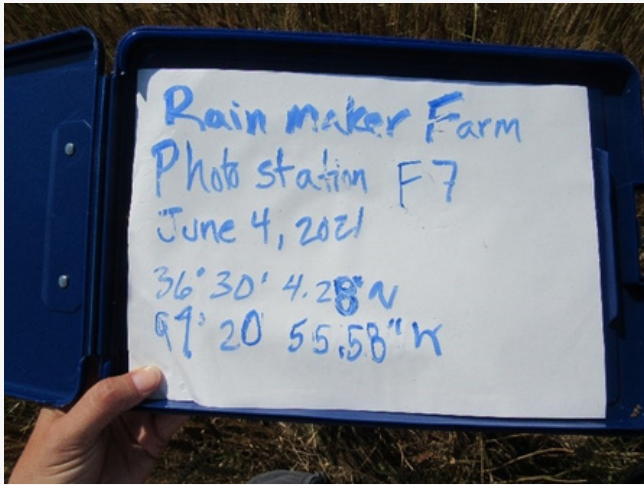 Rain maker Farm
Photo station F7
June 4, 2021
36° 30' 4.28" N
99° 20 55.58" W